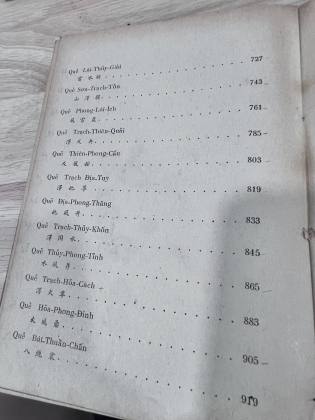 Quẻ Lôi-Thủy-Giải
雷水解 . . . . . . . . . . . . . . 727
Quẻ Sơn-Trạch-Tổn
山澤損 . . . . . . . . . . . . . . 743
Quẻ Phong-Lôi-Ích
風雷益 . . . . . . . . . . . . . . 761
Quẻ Trạch-Thiên-Quải
澤天夬 . . . . . . . . . . . . . . 785
Quẻ Thiên-Phong-Cấu
天風姤 . . . . . . . . . . . . . . 803
Quẻ Trạch Địa-Tụy
澤地萃 . . . . . . . . . . . . . . 819
Quẻ Địa-Phong-Thăng
地風升 . . . . . . . . . . . . . . 833
Quẻ Trạch-Thủy-Khốn
澤困水 . . . . . . . . . . . . . . 845
Quẻ Thủy-Phong-Tỉnh
水風井 . . . . . . . . . . . . . . 865
Quẻ Trạch-Hỏa-Cách
澤火革 . . . . . . . . . . . . . . 883
Quẻ Hỏa-Phong-Đỉnh
火風鼎 . . . . . . . . . . . . . . 905
Quẻ Bát-Thuần-Chấn
八純震 . . . . . . . . . . . . . . 919